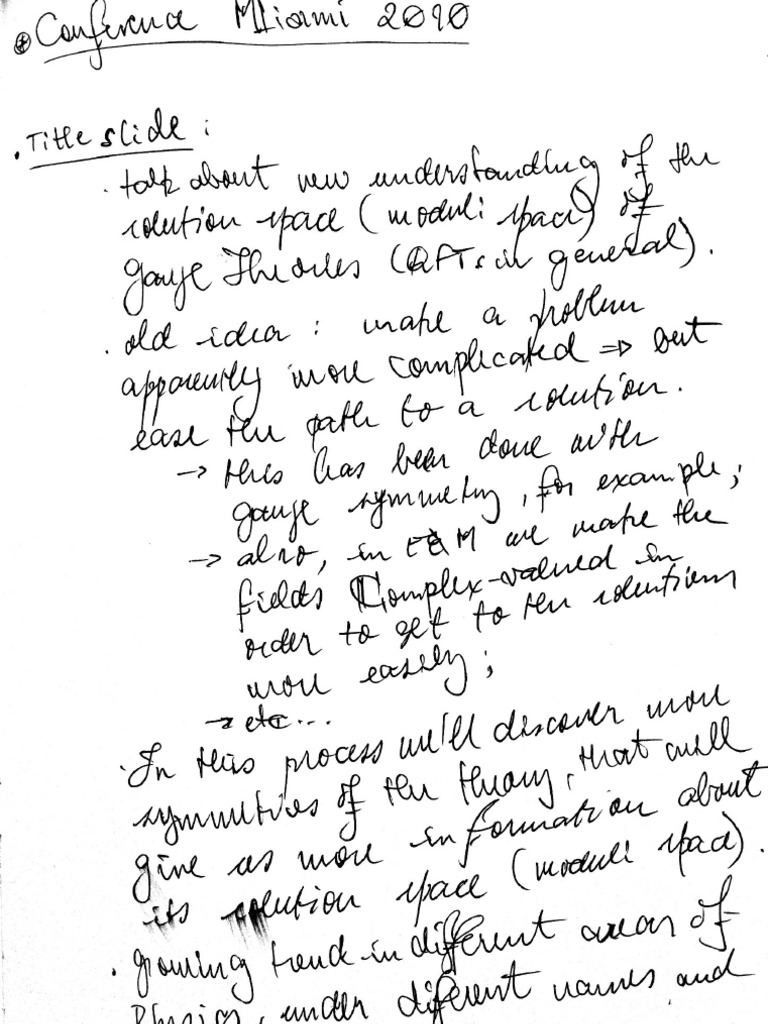 ⊛ Conference Miami 2010
. Title slide :
. talk about new understanding of the
solution space (moduli space) of
Gauge Theories (QFTs in general).
. old idea : make a problem
apparently more complicated ⇒ but
ease the path to a solution.
→ this has been done with
gauge symmetry, for example;
→ also, in E&M we make the
fields Complex-valued in
order to get to the solutions
more easily;
→ etc...
. In this process we'll discover more
symmetries of the theory, that will
give us more information about
its solution space (moduli space).
. growing trend in different areas of
Physics, under different names and